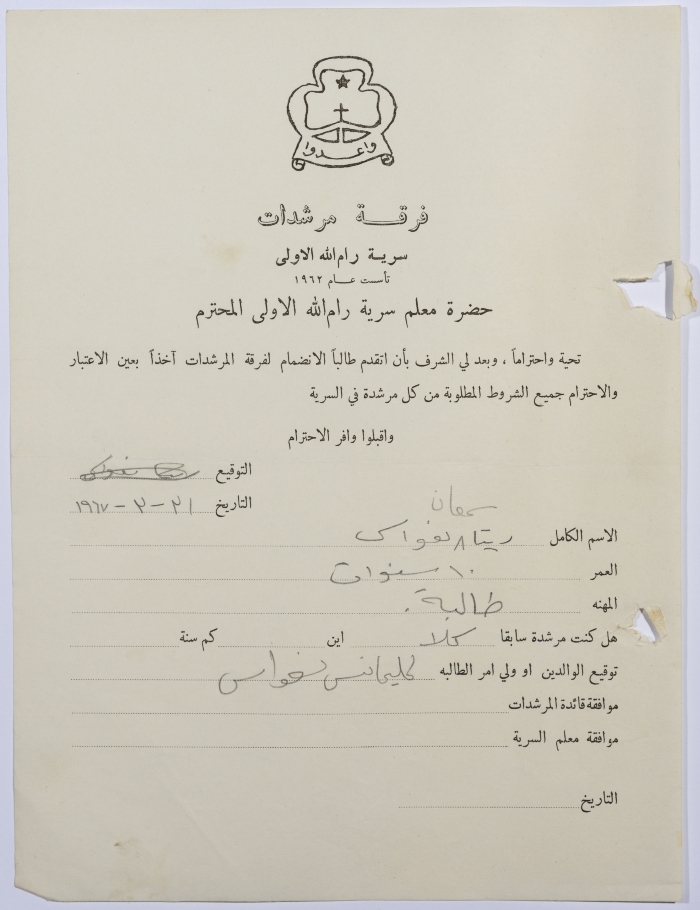 واعدوا
فرقة مرشدات
سرية رام الله الاولى
تأسست عام ١٩٦٢
حضرة معلم سرية رام الله الاولى المحترم
تحية واحتراماً ، وبعد لي الشرف بأن اتقدم طالباً الانضمام لفرقة المرشدات آخذاً بعين الاعتبار
والاحترام جميع الشروط المطلوبة من كل مرشدة في السرية
واقبلوا وافر الاحترام
التوقيع
التاريخ ٢١ - ٣ - ١٩٦٧
سمعان
الاسم الكامل ريتا نغواس
العمر ١٠ سنوات
المهنه طالبة .
هل كنت مرشدة سابقا كلا اين كم سنة
توقيع الوالدين او ولي امر الطالبه نغواس
موافقة قائدة المرشدات
موافقة معلم السرية
التاريخ